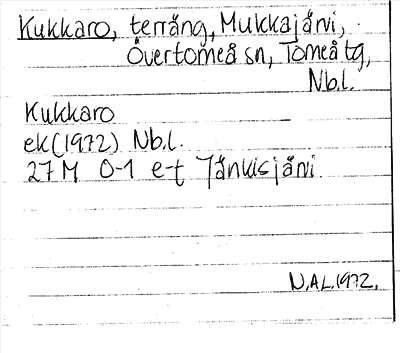 Kukkaro, terräng, Mukkajärvi,
Övertorneå sn, Torneå tg,
Nb.l.
Kukkaro
ek(1972) Nb.l.
27 M 0-1 e-f Jänkisjärvi
N.Å.L.1972.